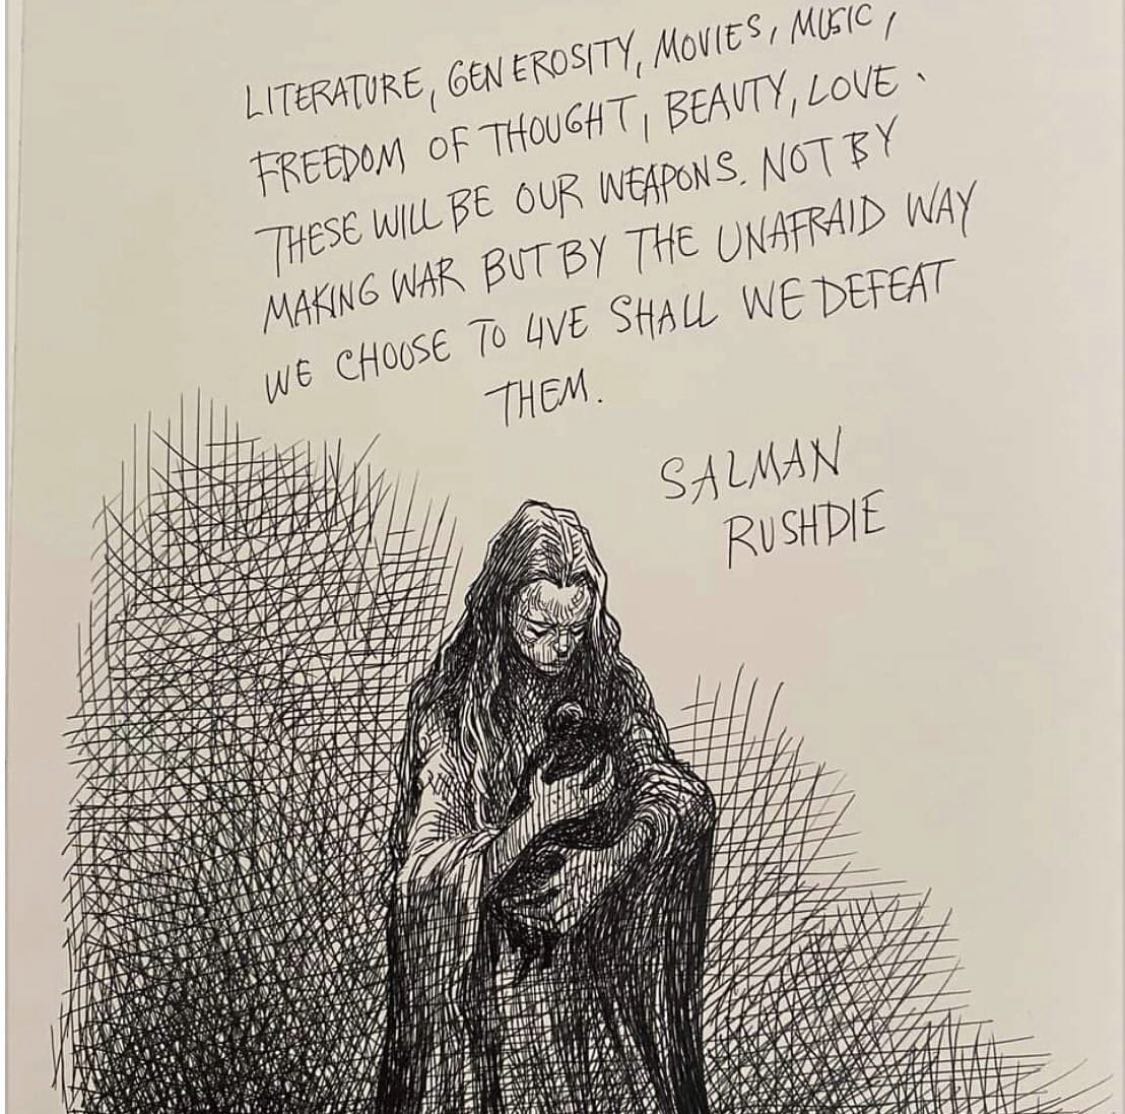 LITERATURE, GENEROSITY, MOVIES, MUSIC,
FREEDOM OF THOUGHT, BEAUTY, LOVE.
THESE WILL BE OUR WEAPONS. NOT BY
MAKING WAR BUT BY THE UNAFRAID WAY
WE CHOOSE TO LIVE SHALL WE DEFEAT
THEM.
SALMAN
RUSHDIE